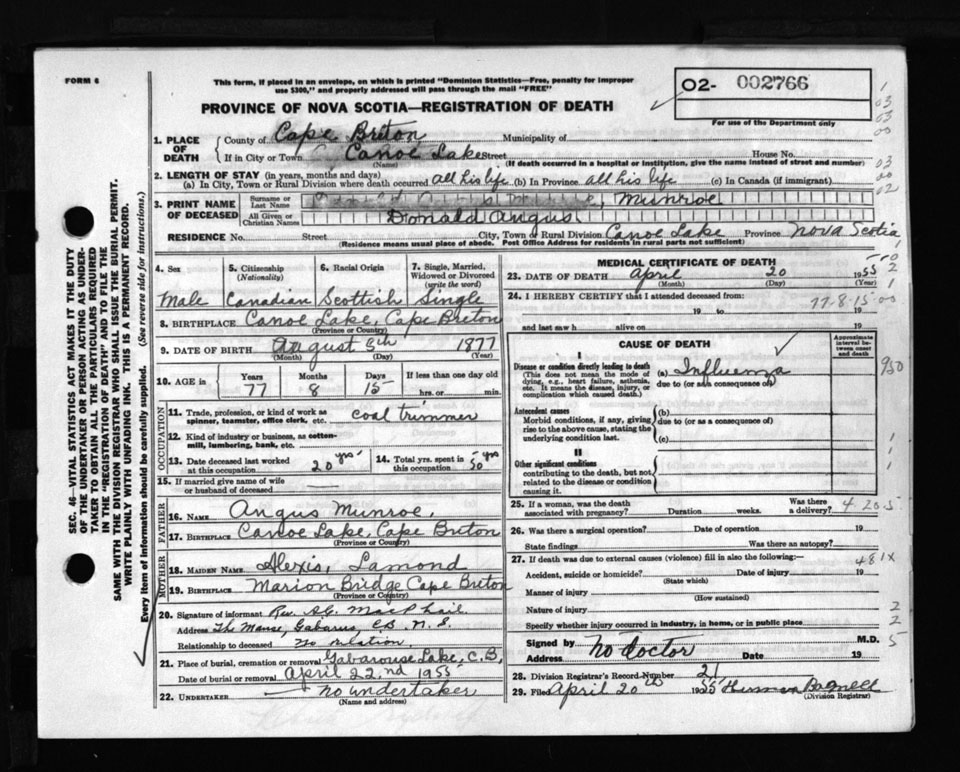 FORM 6
This form, if placed in an envelope, on which is printed "Dominion Statistics—Free, penalty for improper
use $300," and properly addressed will pass through the mail "FREE"
02- 002766
For use of the Department only
PROVINCE OF NOVA SCOTIA—REGISTRATION OF DEATH
1. PLACE OF DEATH
County of Cape Breton Municipality of
If in City or Town Canoe Lake Street House No.
(Name) (If death occurred in a hospital or institution, give the name instead of street and number)
2. LENGTH OF STAY (in years, months and days)
(a) In City, Town or Rural Division where death occurred all his life (b) In Province all his life (c) In Canada (if immigrant)
3. PRINT NAME OF DECEASED
Surname or Last Name Munroe
All Given or Christian Names Donald Angus
RESIDENCE No. Street City, Town or Rural Division Canoe Lake Province Nova Scotia
(Residence means usual place of abode. Post Office Address for residents in rural parts not sufficient)
4. Sex 5. Citizenship (Nationality) 6. Racial Origin 7. Single, Married, Widowed or Divorced (write the word)
Male Canadian Scottish Single
8. BIRTHPLACE Canoe Lake, Cape Breton
(Province or Country)
9. DATE OF BIRTH August 5th 1877
(Month) (Day) (Year)
10. AGE in Years Months Days If less than one day old
77 8 15 hrs. or min.
OCCUPATION
11. Trade, profession, or kind of work as spinner, teamster, office clerk, etc. coal trimmer
12. Kind of industry or business, as cotton-mill, lumbering, bank, etc.
13. Date deceased last worked at this occupation 20 yrs
14. Total yrs. spent in this occupation 50 yrs
15. If married give name of wife or husband of deceased
FATHER
16. NAME Angus Munroe,
17. BIRTHPLACE Canoe Lake, Cape Breton
(Province or Country)
MOTHER
18. MAIDEN NAME Alexis, Lamond
19. BIRTHPLACE Marion Bridge Cape Breton
(Province or Country)
20. Signature of informant Rev. A.C. MacPhail
Address The Manse, Gabarus C.B. N.S.
Relationship to deceased no relation
21. Place of burial, cremation or removal Gabarouse Lake, C.B,
Date of burial or removal April 22,nd 1955
22. UNDERTAKER no undertaker
(Name and address)
MEDICAL CERTIFICATE OF DEATH
23. DATE OF DEATH April 20 1955
(Month) (Day) (Year)
24. I HEREBY CERTIFY that I attended deceased from:
77-8-15
19 to 19
and last saw h alive on 19
CAUSE OF DEATH
Approximate interval between onset and death
I
Disease or condition directly leading to death
(This does not mean the mode of dying, e.g., heart failure, asthenia, etc. It means the disease, injury, or complication which caused death.)
(a) Influenza
due to (or as a consequence of)
Antecedent causes
Morbid conditions, if any, giving rise to the above cause, stating the underlying condition last.
(b)
due to (or as a consequence of)
(c)
II
Other significant conditions
contributing to the death, but not related to the disease or condition causing it.
25. If a woman, was the death associated with pregnancy? Duration weeks. Was there a delivery?
4 20 5
26. Was there a surgical operation? Date of operation 19
State findings Was there an autopsy?
27. If death was due to external causes (violence) fill in also the following:—
481X
Accident, suicide or homicide? Date of injury 19
(State which)
Manner of injury
(How sustained)
Nature of injury
Specify whether injury occurred in industry, in home, or in public place
Signed by no doctor M.D.
Address Date 19
28. Division Registrar's Record Number 21
29. Filed April 20th 1955 Herman Bagnell
(Division Registrar)
SEC. 46—VITAL STATISTICS ACT MAKES IT THE DUTY
OF THE UNDERTAKER OR PERSON ACTING AS UNDER-
TAKER TO OBTAIN ALL THE PARTICULARS REQUIRED
IN THE "REGISTRATION OF DEATH" AND TO FILE THE
SAME WITH THE DIVISION REGISTRAR WHO SHALL ISSUE THE BURIAL PERMIT.
WRITE PLAINLY WITH UNFADING INK. THIS IS A PERMANENT RECORD.
Every item of information should be carefully supplied. (See reverse side for instructions.)